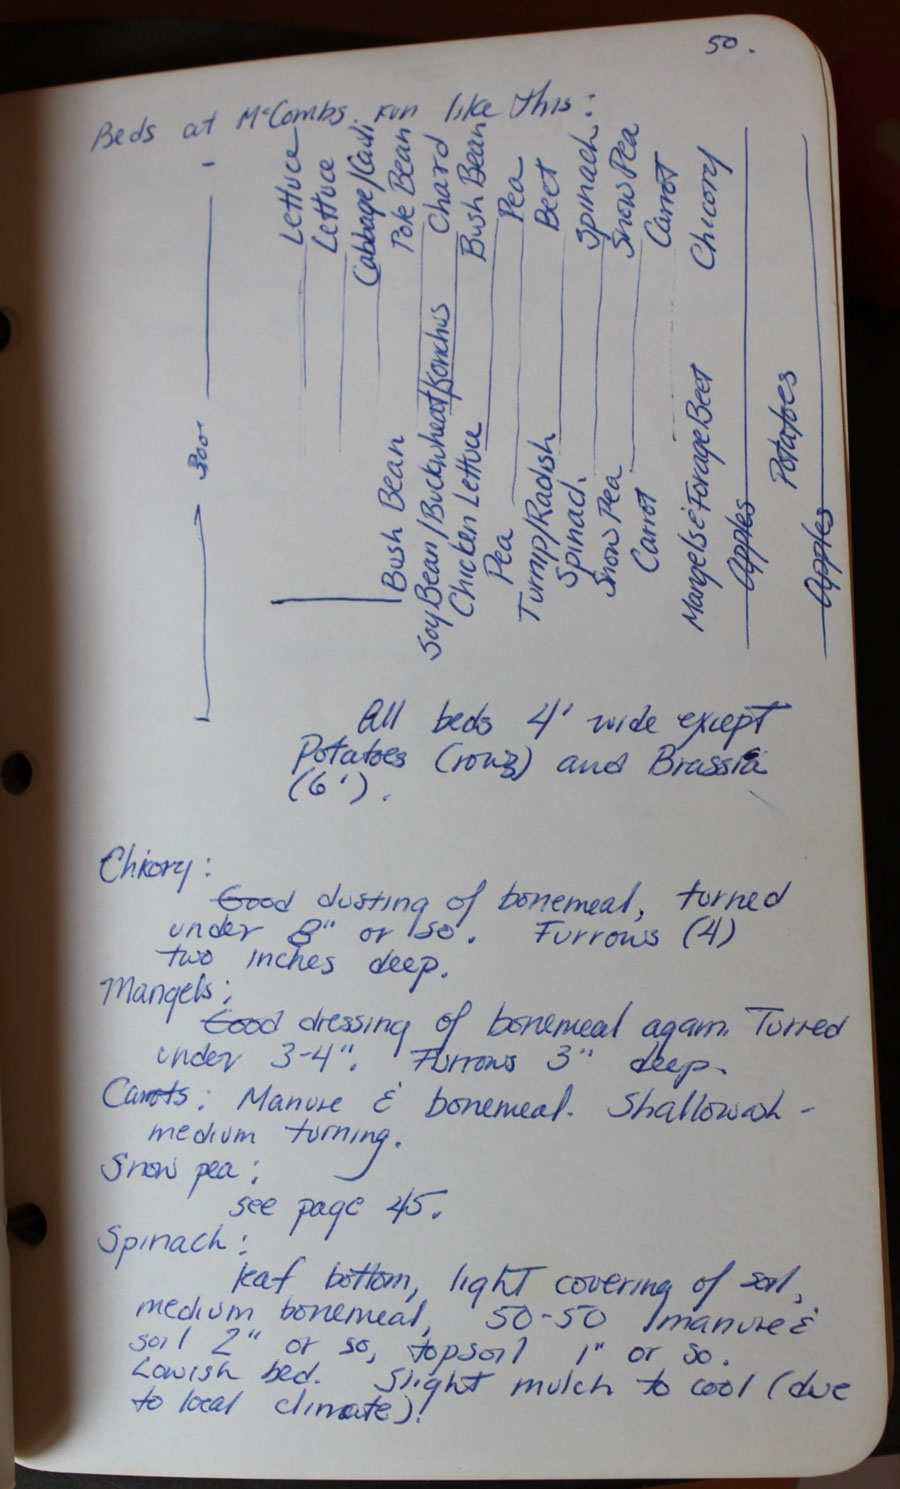 50.
Beds at McCombs run like this:
Lettuce
Lettuce
Cabbage/Cauli
Pole Bean
Chard
Bush Bean
Pea
Beet
Spinach
Snow Pea
Carrot
Chicory
Bush Bean
Soy Bean/Buckwheat/
Chicken Lettuce
Pea
Turnip/Radish
Spinach
Snow Pea
Carrot
Mangels & Forage Beet
Apples
Potatoes
Apples
All beds 4' wide except
Potatoes (rows) and Brassica
(6').
Chicory:
Good dusting of bonemeal, turned
under 8" or so. Furrows (4)
two inches deep.
Mangels:
Good dressing of bonemeal again. Turned
under 3-4". Furrows 3" deep.
Carrots: Manure & bonemeal. Shallowish-
medium turning.
Snow pea:
see page 45.
Spinach:
leaf bottom, light covering of soil,
medium bonemeal, 50-50 manure &
soil 2" or so, topsoil 1" or so.
Lowish bed. Slight mulch to cool (due
to local climate)!